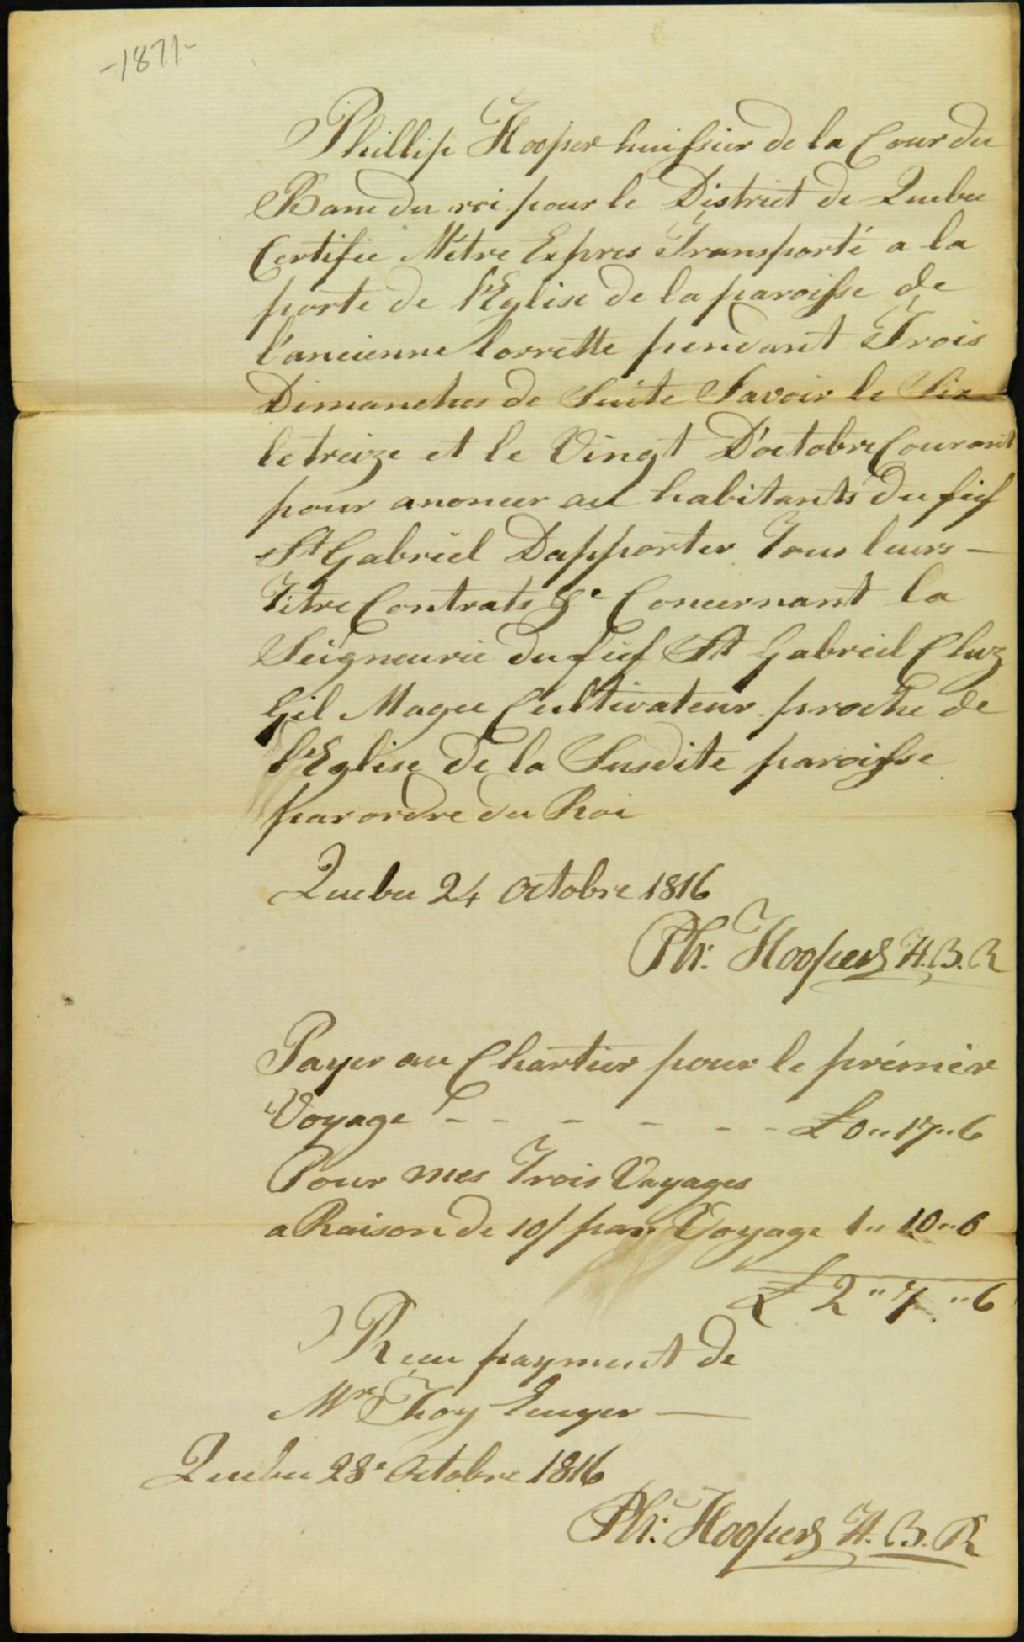 -1871-
Phillip Hooper huissier de la Cour du
Banc du roi pour le District de Quebec
Certifie M'être Expres Transporté a la
porte de l'Eglise de la paroisse de
l'ancienne lorrette pendant Trois
Dimanches de Suite Savoir le Six
le treize et le Vingt D'octobre Courant
pour anoncer au habitants du fief
St Gabriel Dapporter Tous leurs —
Titre Contrats &c Concernant la
Seigneurie du fief St Gabriel Chez
Gil Magee Cultivateur proche de
l'Eglise de la Susdite paroisse
par ordre du Roi
Quebec 24 Octobre 1816
Ph: Hooper H.B.R
Payer au Chartier pour le prémier
Voyage - - - - - - £0"17"6
Pour mes Trois Voyages
a Raison de 10/ par Voyage 1" 10"0
£ 2"7"6
Recu payment de
Mr
Quebec 28 Octobre 1816
Ph: Hooper H.B.R